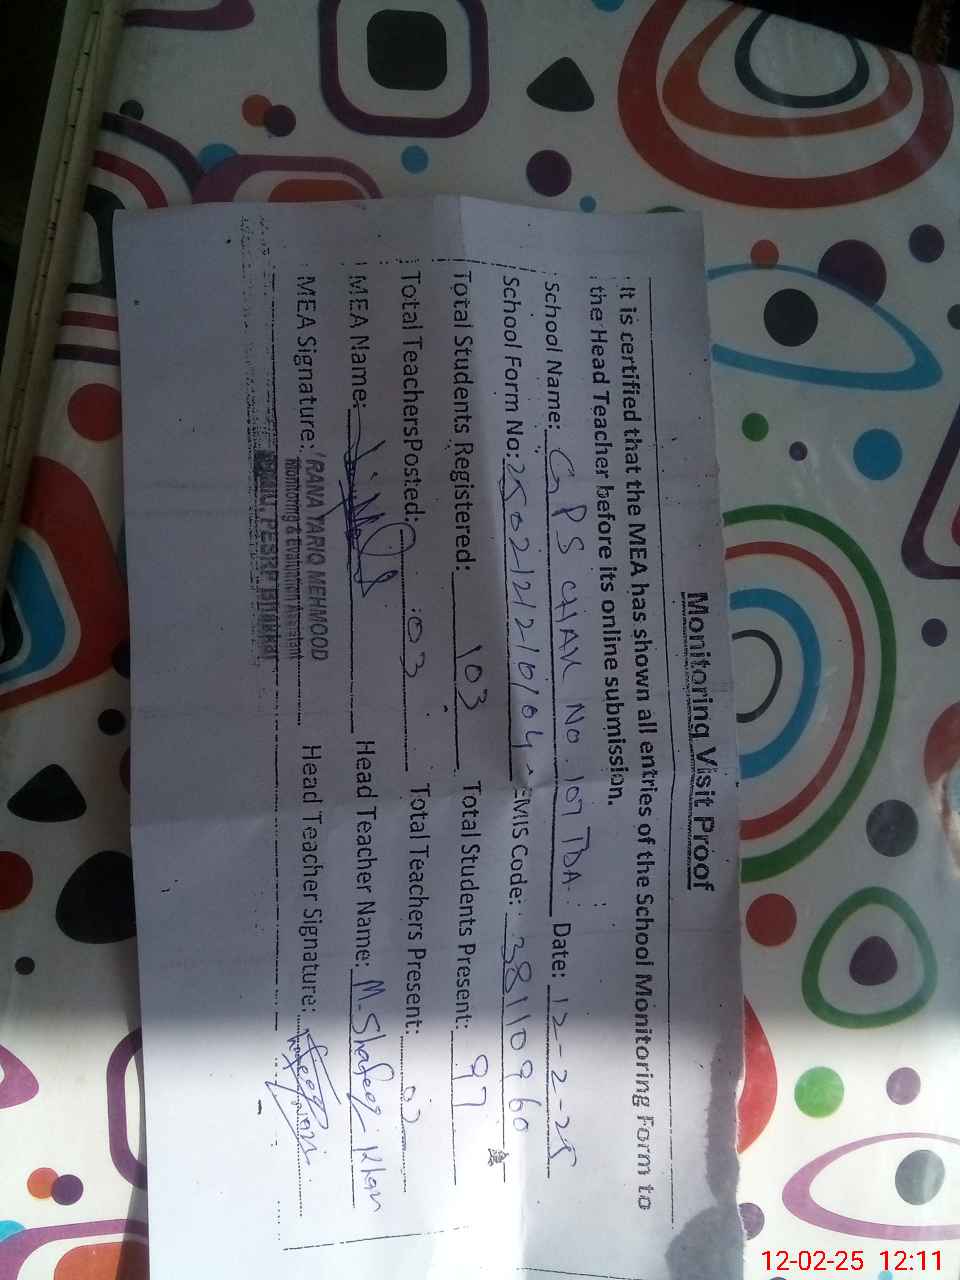 Monitoring Visit Proof
It is certified that the MEA has shown all entries of the School Monitoring Form to
the Head Teacher before its online submission.
School Name: G P S CHAK NO. 107 TDA. Date: 12-2-25
School Form No: EMIS Code: 38110960
Total Students Registered: 103 Total Students Present: 97
Total TeachersPosted: 03 Total Teachers Present:
MEA Name: Head Teacher Name: M. Shafeeq Khan
MEA Signature: RANA TARIQ MEHMOOD Head Teacher Signature:
Monitoring & Evaluation Assistant
PESRP Bhakkar
12-02-25 12:11